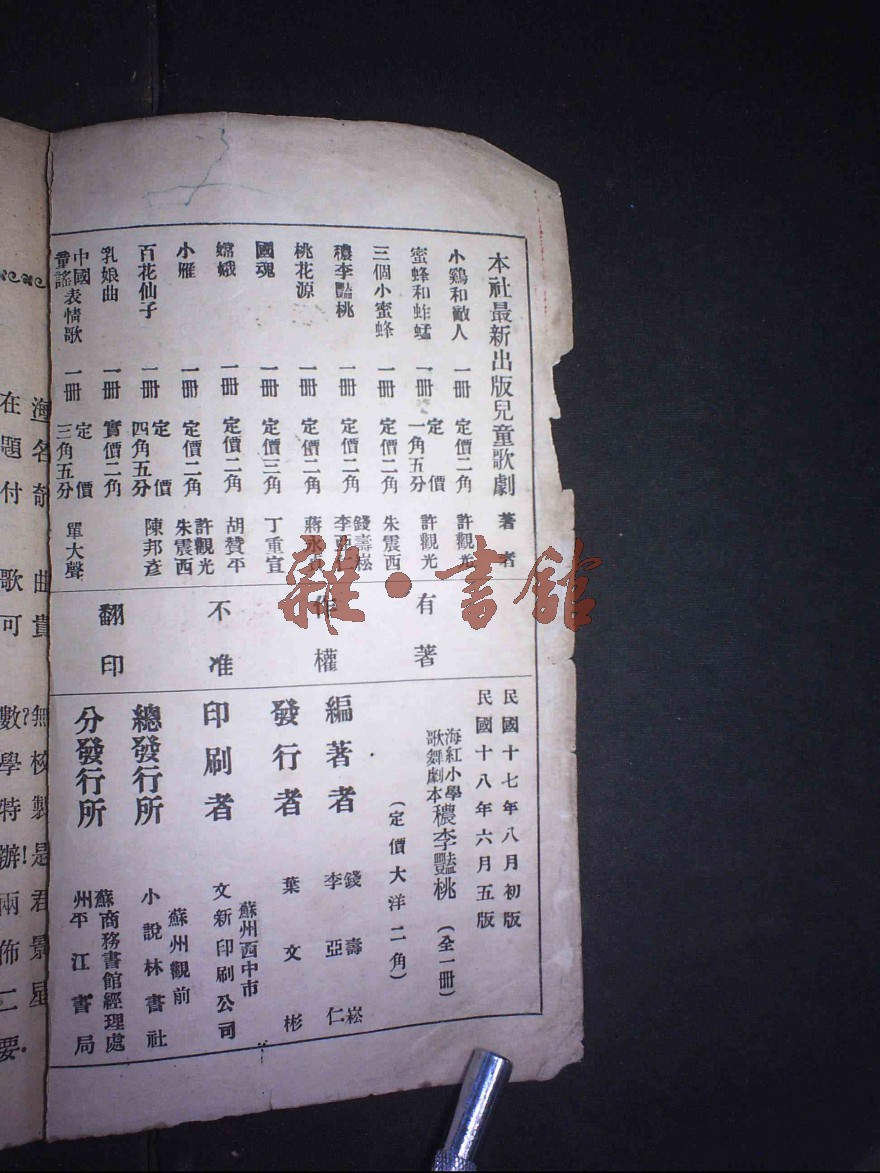 本社最新出版兒童歌劇 著者
小鷄和敵人 一冊 定價二角 許觀光
蜜蜂和蚱蜢 一冊 定價一角五分 許觀光
三個小蜜蜂 一冊 定價二角 朱震西
穠李豔桃 一冊 定價二角 錢壽崧 李亞仁
桃花源 一冊 定價二角 蔣永
國魂 一冊 定價三角 丁重宣
嫦娥 一冊 定價二角 胡贊平
小雁 一冊 定價二角 許觀光 朱震西
百花仙子 一冊 定價四角五分 陳邦彥
乳娘曲 一冊 實價二角
中國童謠表情歌 一冊 定價三角五分 單大聲
有著
作權
不准
翻印
民國十七年八月初版
民國十八年六月五版
海紅小學歌舞劇本 穠李豔桃 (全一冊)
(定價大洋二角)
編著者 錢壽崧 李亞仁
發行者 葉文彬
印刷者 蘇州西中市 文新印刷公司
總發行所 蘇州觀前 小說林書社
分發行所 蘇商務書館經理處 州平江書局
雜·書館
奇 曲貴 無校製是君景星
在題付 歌可 數學特辦兩佈二要